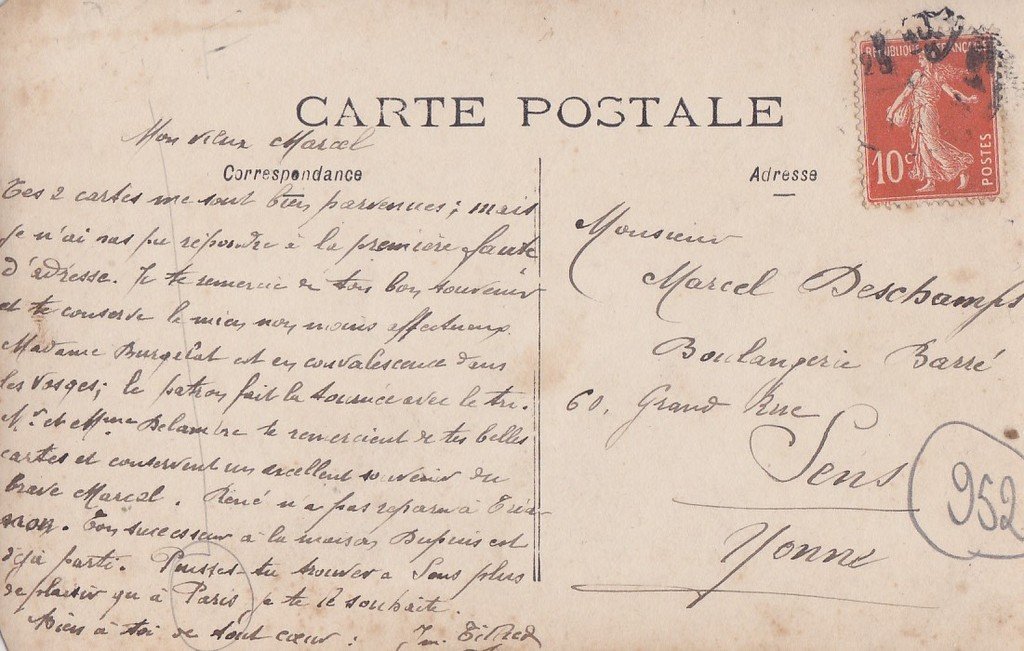 CARTE POSTALE
Correspondance
Mon vieux Marcel
Tes 2 cartes me sont bien parvenues ; mais
je n'ai pas pu répondre à la première faute
d'adresse. Je te remercie de ton bon souvenir
et te conserve le mien non moins affectueux.
Madame Burgelat est en convalescence dans
les Vosges ; le patron fait la tournée avec le tri.
Mr et Mme Delambre te remercient de tes belles
cartes et conservent un excellent souvenir du
brave Marcel. René n'a pas reparu à Tria-
non. Ton successeur à la maison Dupuis est
déjà parti. Puisses-tu trouver à Sens plus
de plaisir qu'à Paris je te le souhaite.
Bien à toi de tout cœur :
Adresse
Monsieur
Marcel Deschamps
Boulangerie Barré
60, Grand Rue
Sens
Yonne
952
REPUBLIQUE FRANÇAISE
10c
POSTES